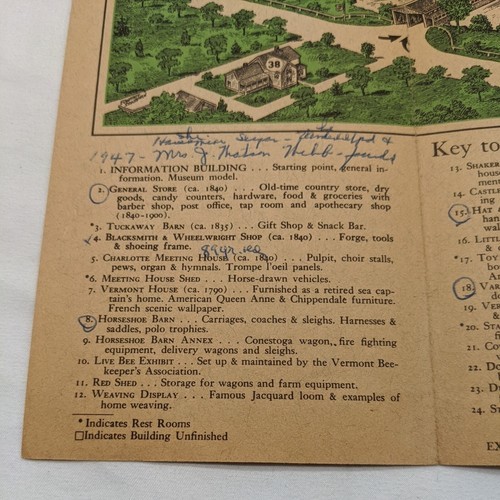 38
1947 - Mrs. J. Watson Webb -
Key to
1. Information Building . . . Starting point, general in-
formation. Museum model.
2. General Store (ca. 1840) . . . Old-time country store, dry
goods, candy counters, hardware, food & groceries with
barber shop, post office, tap room and apothecary shop
(1840-1900).
*3. Tuckaway Barn (ca. 1835) . . . Gift Shop & Snack Bar.
4. Blacksmith & Wheelwright Shop (ca. 1840) . . . Forge, tools
& shoeing frame.
5. Charlotte Meeting House (ca. 1840) . . . Pulpit, choir stalls,
pews, organ & hymnals. Trompe l'oeil panels.
*6. Meeting House Shed . . . Horse-drawn vehicles.
7. Vermont House (ca. 1790) . . . Furnished as a retired sea cap-
tain's home. American Queen Anne & Chippendale furniture.
French scenic wallpaper.
8. Horseshoe Barn . . . Carriages, coaches & sleighs. Harnesses &
saddles, polo trophies.
9. Horseshoe Barn Annex . . . Conestoga wagon, fire fighting
equipment, delivery wagons and sleighs.
10. Live Bee Exhibit . . . Set up & maintained by the Vermont Bee-
keeper's Association.
11. Red Shed . . . Storage for wagons and farm equipment.
12. Weaving Display . . . Famous Jacquard loom & examples of
home weaving.
* Indicates Rest Rooms
□Indicates Building Unfinished
13. Shaker
house
med
14. Castl
ing
15. Hat
han
wall
16. Littl
*17. Toy
18. Var
19. Ver
*20. Sta
21. Co
22. Do
23. Di
24. St
Ex